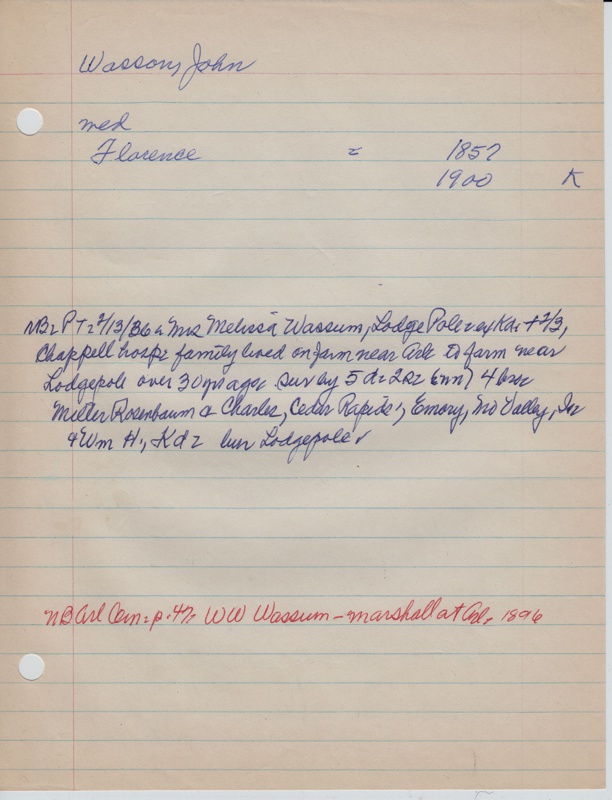 Wasson, John
med
Florence = 1857
1900 K
NB2 PT2 2/13/36 Mrs Melissa Wassum, Lodge Pole 2/3,
Chappell hosp family lived on farm near Arl to farm near
Lodgepole over 30 yrs ago surv by 5 d 2 s 4 bros
Miller Rosenbaum Charles, Cedar Rapids, Emory, Mo Valley, Ia
+ Wm H., K bur Lodgepole
NB Arl Cem p. 47 WW Wassum - marshall at Arl. 1896